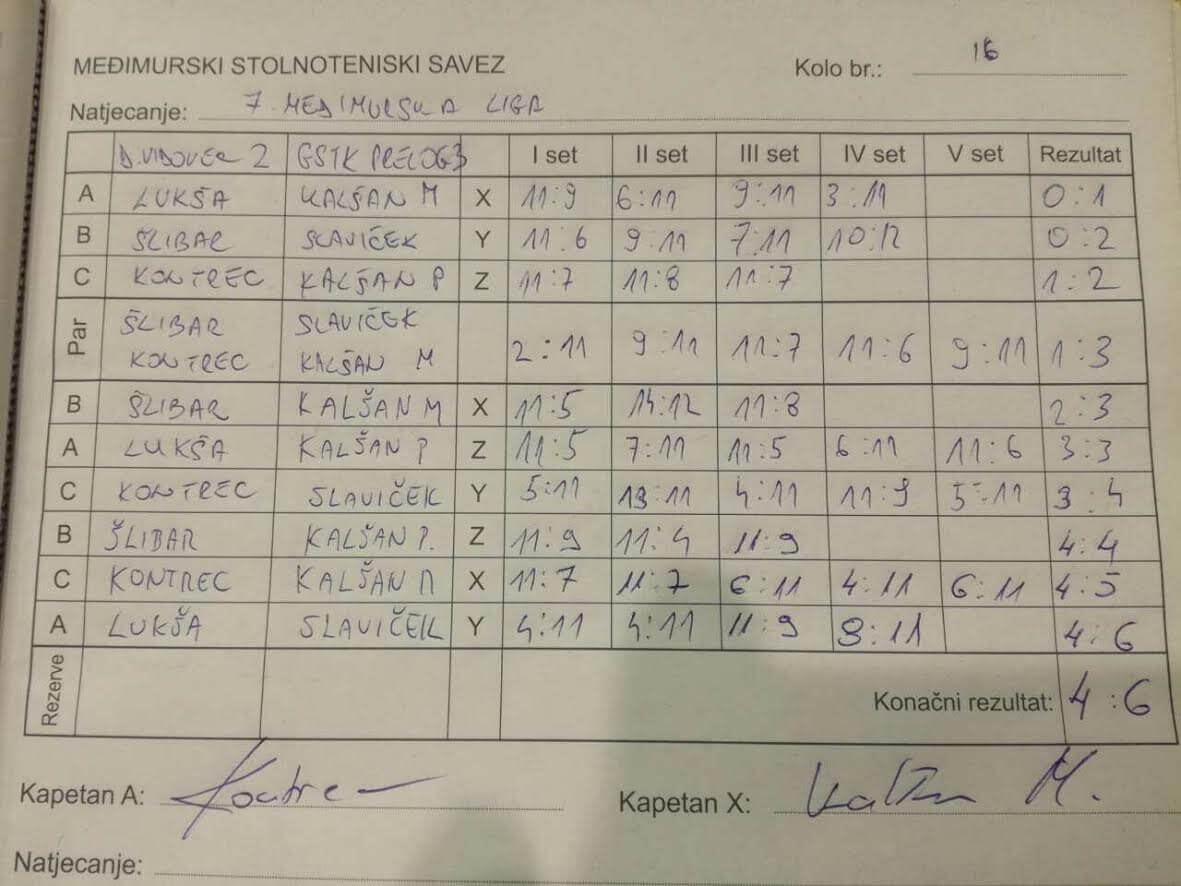 MEĐIMURSKI STOLNOTENISKI SAVEZ Kolo br.: 16
Natjecanje: 7. MEĐIMURSKA LIGA
D.VIDOVEC 2 GSTK PRELOG3 I set II set III set IV set V set Rezultat
A LUKŠA KALŠAN M X 11:9 6:11 9:11 3:11 0:1
B ŠLIBAR SLAVIČEK Y 11:6 9:11 7:11 10:12 0:2
C KONTREC KALŠAN P Z 11:7 11:8 11:7 1:2
Par ŠLIBAR SLAVIČEK
KONTREC KALŠAN M 2:11 9:11 11:7 11:6 9:11 1:3
B ŠLIBAR KALŠAN M X 11:5 14:12 11:8 2:3
A LUKŠA KALŠAN P Z 11:5 7:11 11:5 6:11 11:6 3:3
C KONTREC SLAVIČEK Y 5:11 13:11 4:11 11:9 5:11 3:4
B ŠLIBAR KALŠAN P. Z 11:9 11:4 11:9 4:4
C KONTREC KALŠAN M X 11:7 11:7 6:11 4:11 6:11 4:5
A LUKŠA SLAVIČEK Y 4:11 4:11 11:9 8:11 4:6
Rezerve Konačni rezultat: 4:6
Kapetan A: Kontrec Kapetan X: Kalšan M.
Natjecanje: